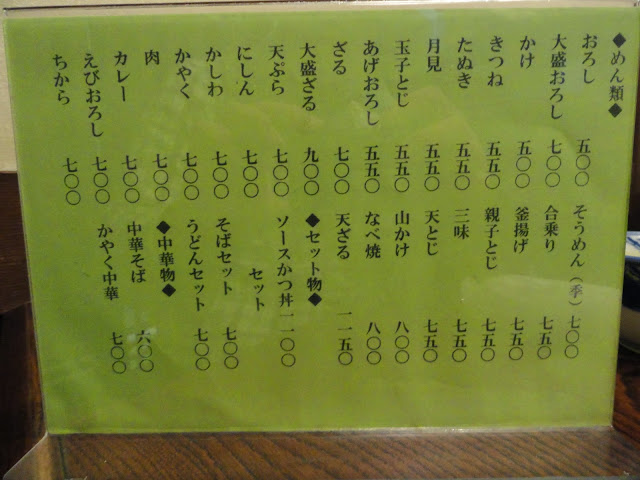 ◆めん類◆
おろし 五〇〇
大盛おろし 七〇〇
かけ 五〇〇
きつね 五五〇
たぬき 五五〇
月見 五五〇
玉子とじ 五五〇
あげおろし 五五〇
ざる 七〇〇
大盛ざる 九〇〇
天ぷら 七〇〇
にしん 七〇〇
かしわ 七〇〇
かやく 七〇〇
肉 七〇〇
カレー 七〇〇
えびおろし 七〇〇
ちから 七〇〇
そうめん（季）七〇〇
合乗り 七五〇
釜揚げ 七五〇
親子とじ 七五〇
三味 七五〇
天とじ 七五〇
山かけ 八〇〇
なべ焼 八〇〇
天ざる 一一五〇
◆セット物◆
ソースかつ丼一一〇〇
セット
そばセット 七〇〇
うどんセット 七〇〇
◆中華物◆
中華そば 六〇〇
かやく中華 七〇〇